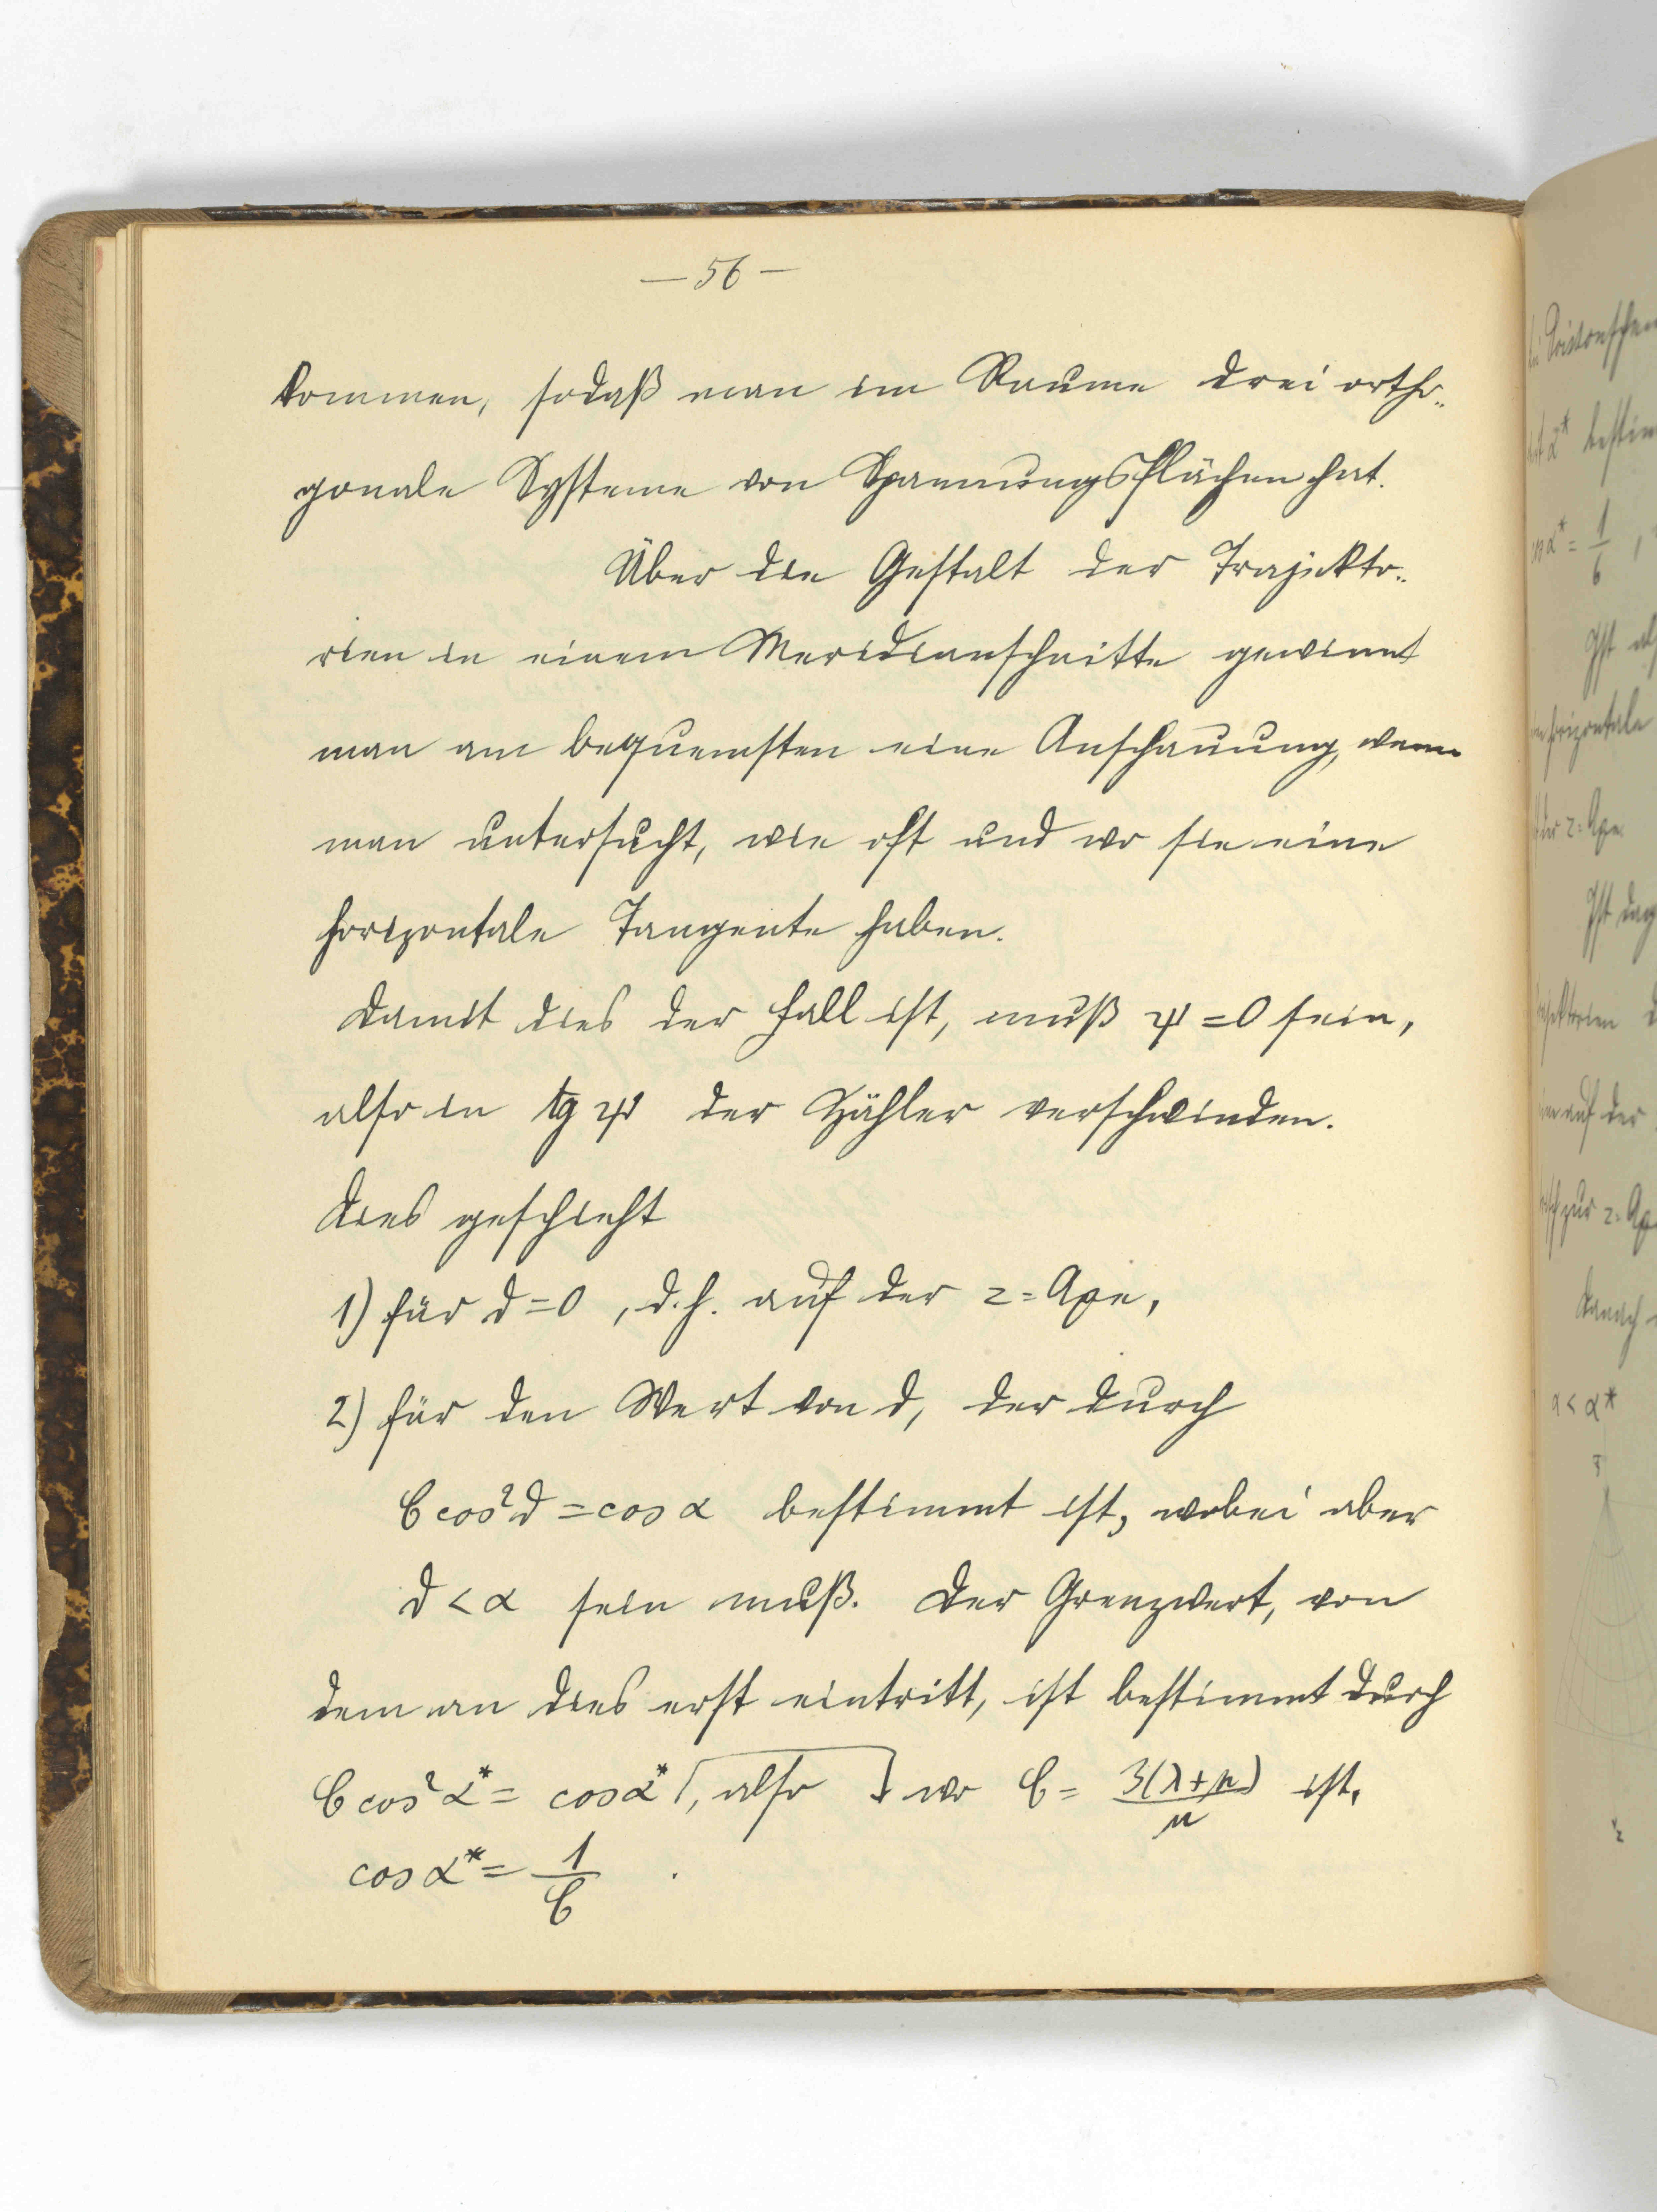 — 56 —
kommen, sodaß man im Raume drei ortho-
gonale Systeme von Spannungsflächen hat.
Über die Gestalt der Trajekto-
rien in einem Meridianschnitte gewinnt
man am bequemsten eine Anschauung, wenn
man untersucht, wie oft und wo sie eine
horizontale Tangente haben.
Damit dies der Fall ist, muß ψ = 0 sein,
also in tg ψ der Zähler verschwinden.
Dies geschieht
1) für ϑ = 0, d.h. auf der z=Axe,
2) für den Wert von ϑ, der durch
C cos²ϑ = cos α bestimmt ist, wobei aber
ϑ < α sein muß. Der Grenzwert, von
dem an dies erst eintritt, ist bestimmt durch
C cos² α* = cos α* [, also ] wo C = 3(λ+μ)/μ ist,
cos α* = 1/C .
cos α* = 1/6 ,
z=Axe
α < α*